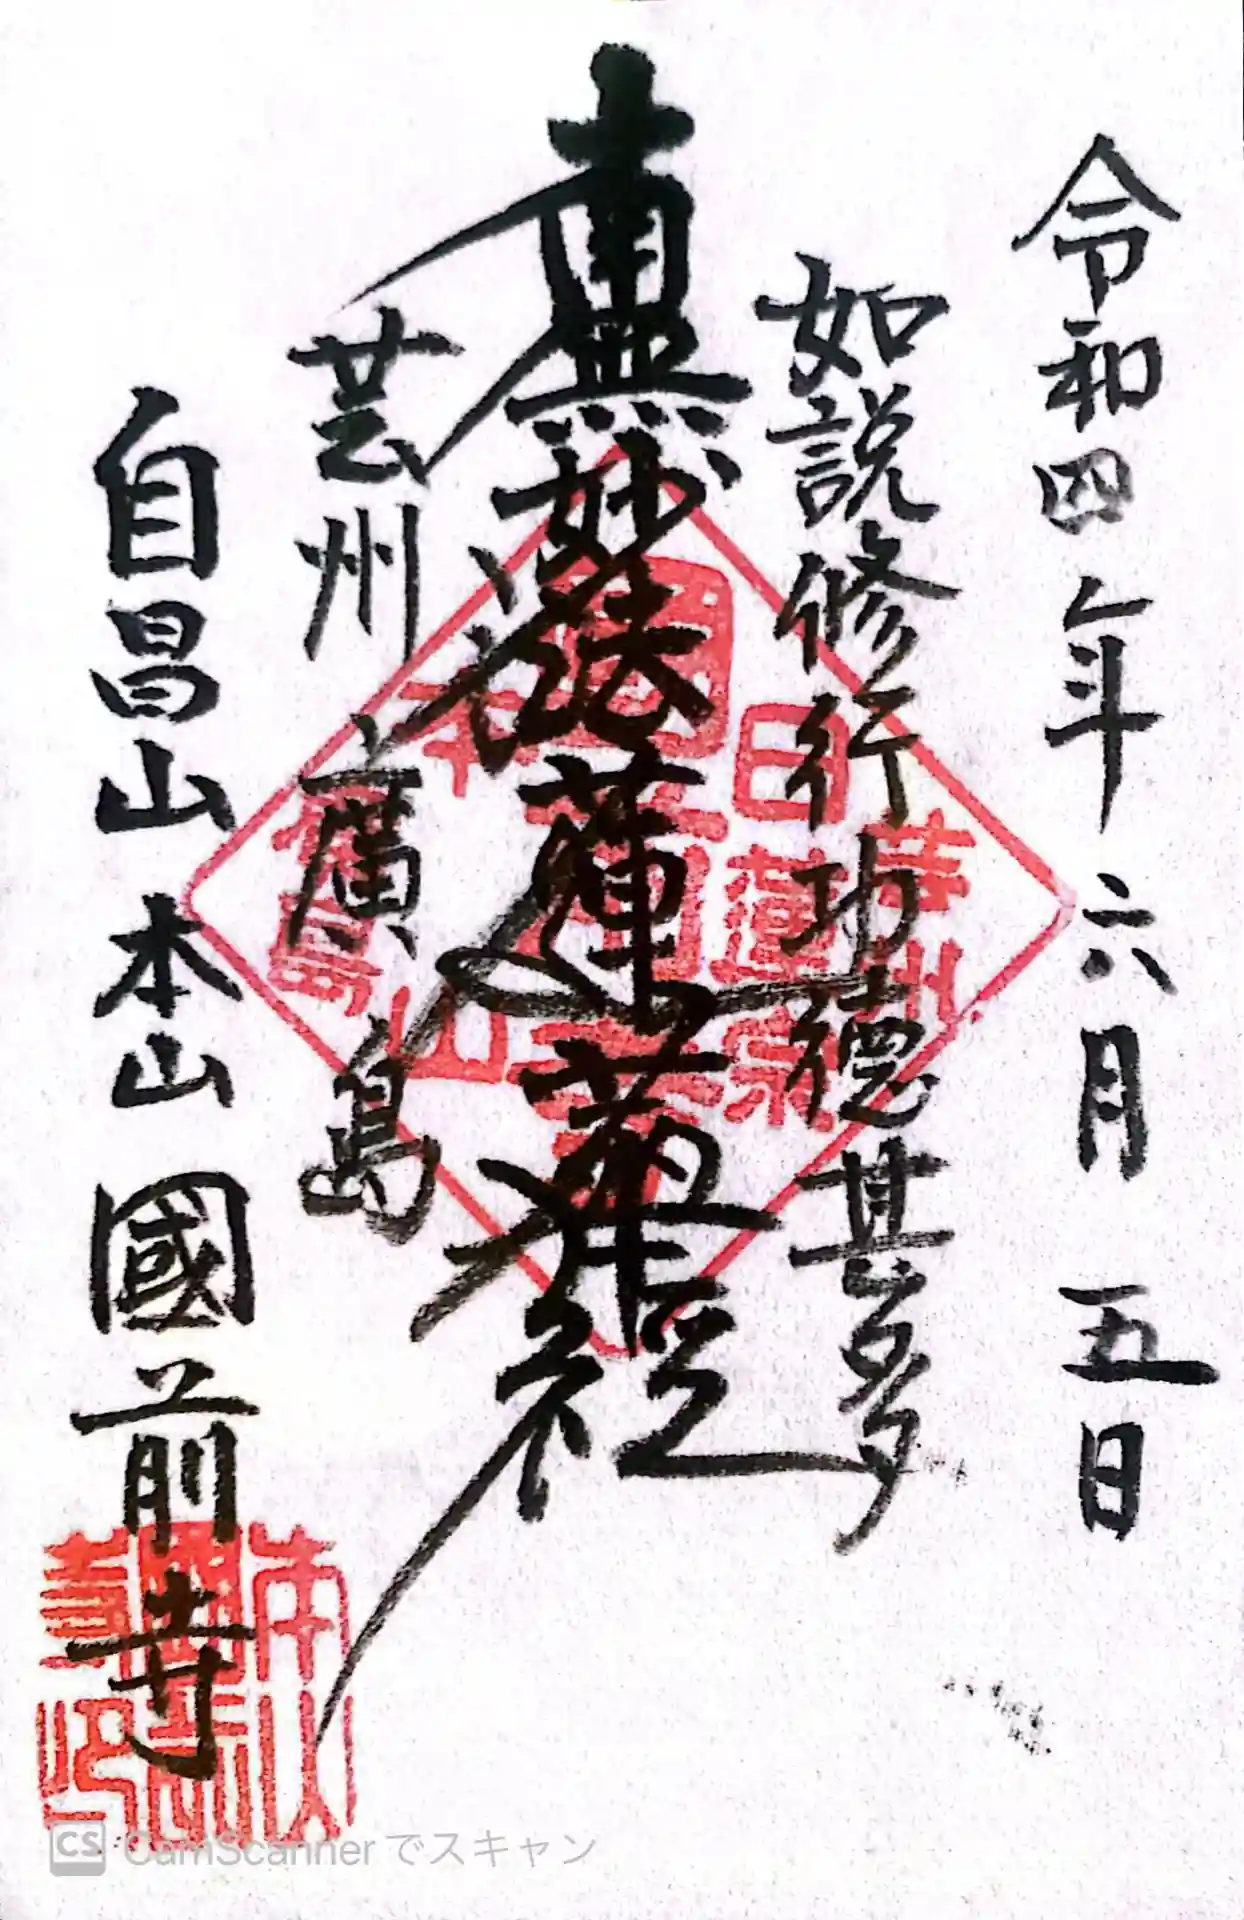 令和四年六月五日
如説修行功徳甚多
南無妙法蓮華経
芸州廣島
自昌山本山國前寺
芸州
日蓮宗
本山
廣島
CS CamScannerでスキャン